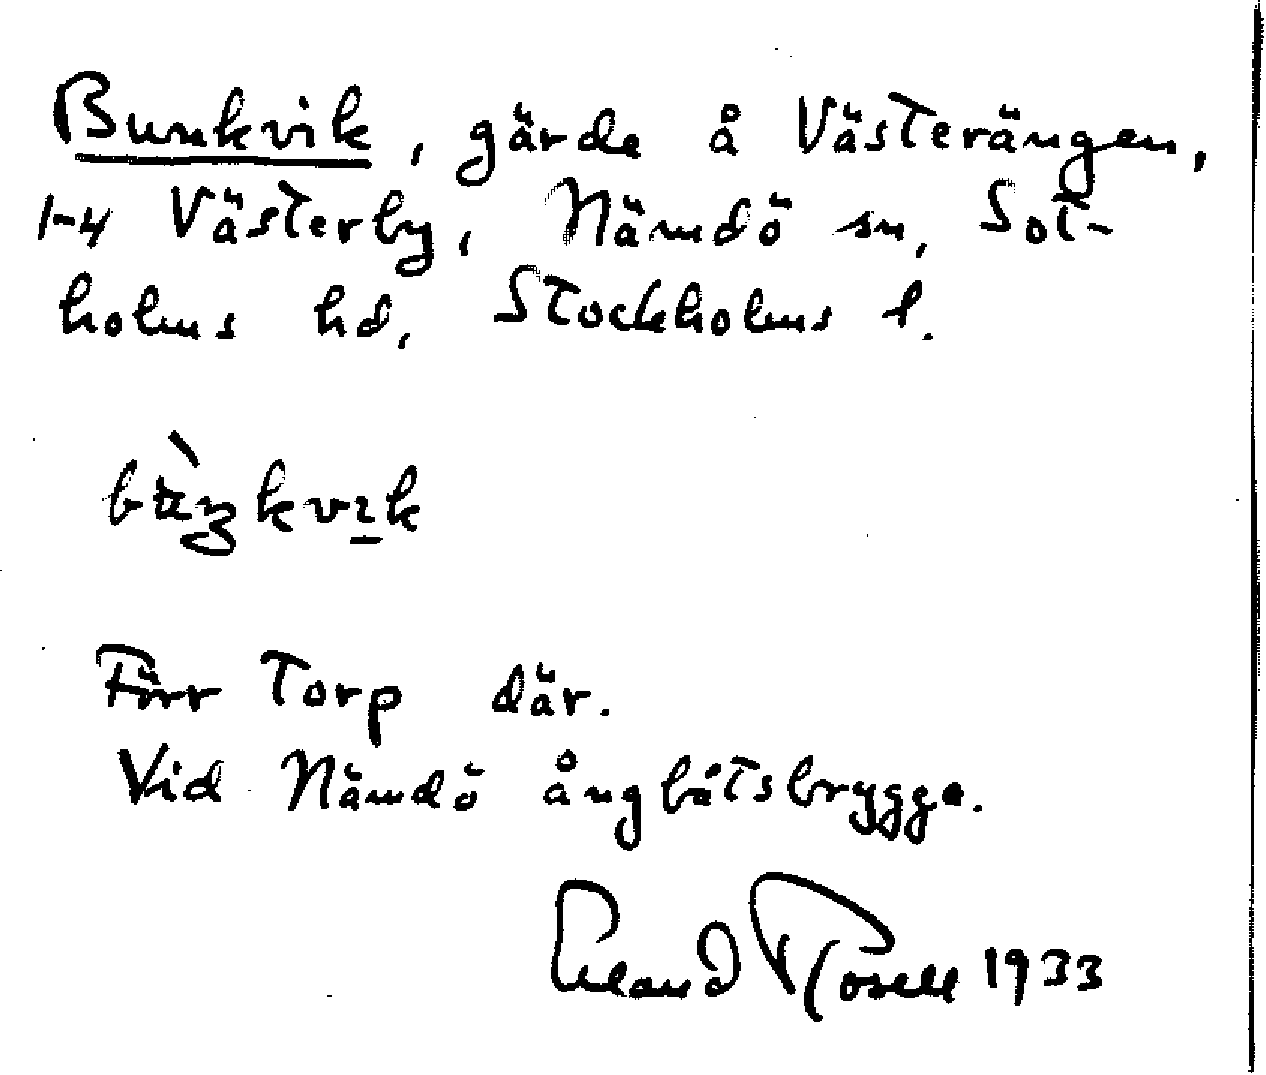 Bunkvik, gärde å Västerängen,
1-4 Västerby, Nämdö sn, Sot-
holms hd, Stockholms l.
Förr Torp där.
Vid Nämdö ångbåtsbrygga.
Erland Rosell 1933